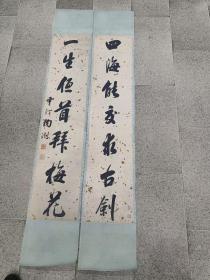 四海能交求古劍
一生低首拜梅花